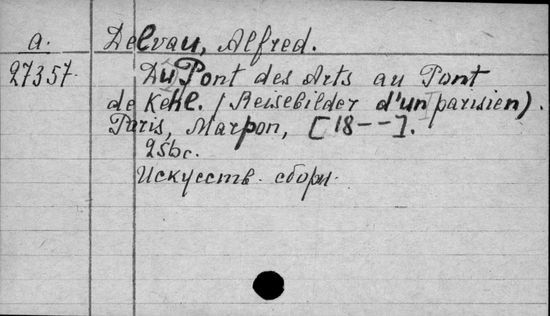 а. Delvau, Alfred.
27357. Du Pont des Arts au Pont
de Kehl. (Reisebilder d'un parisien).
Paris, Marpon, [18--].
256c.
Искусств. сборн.